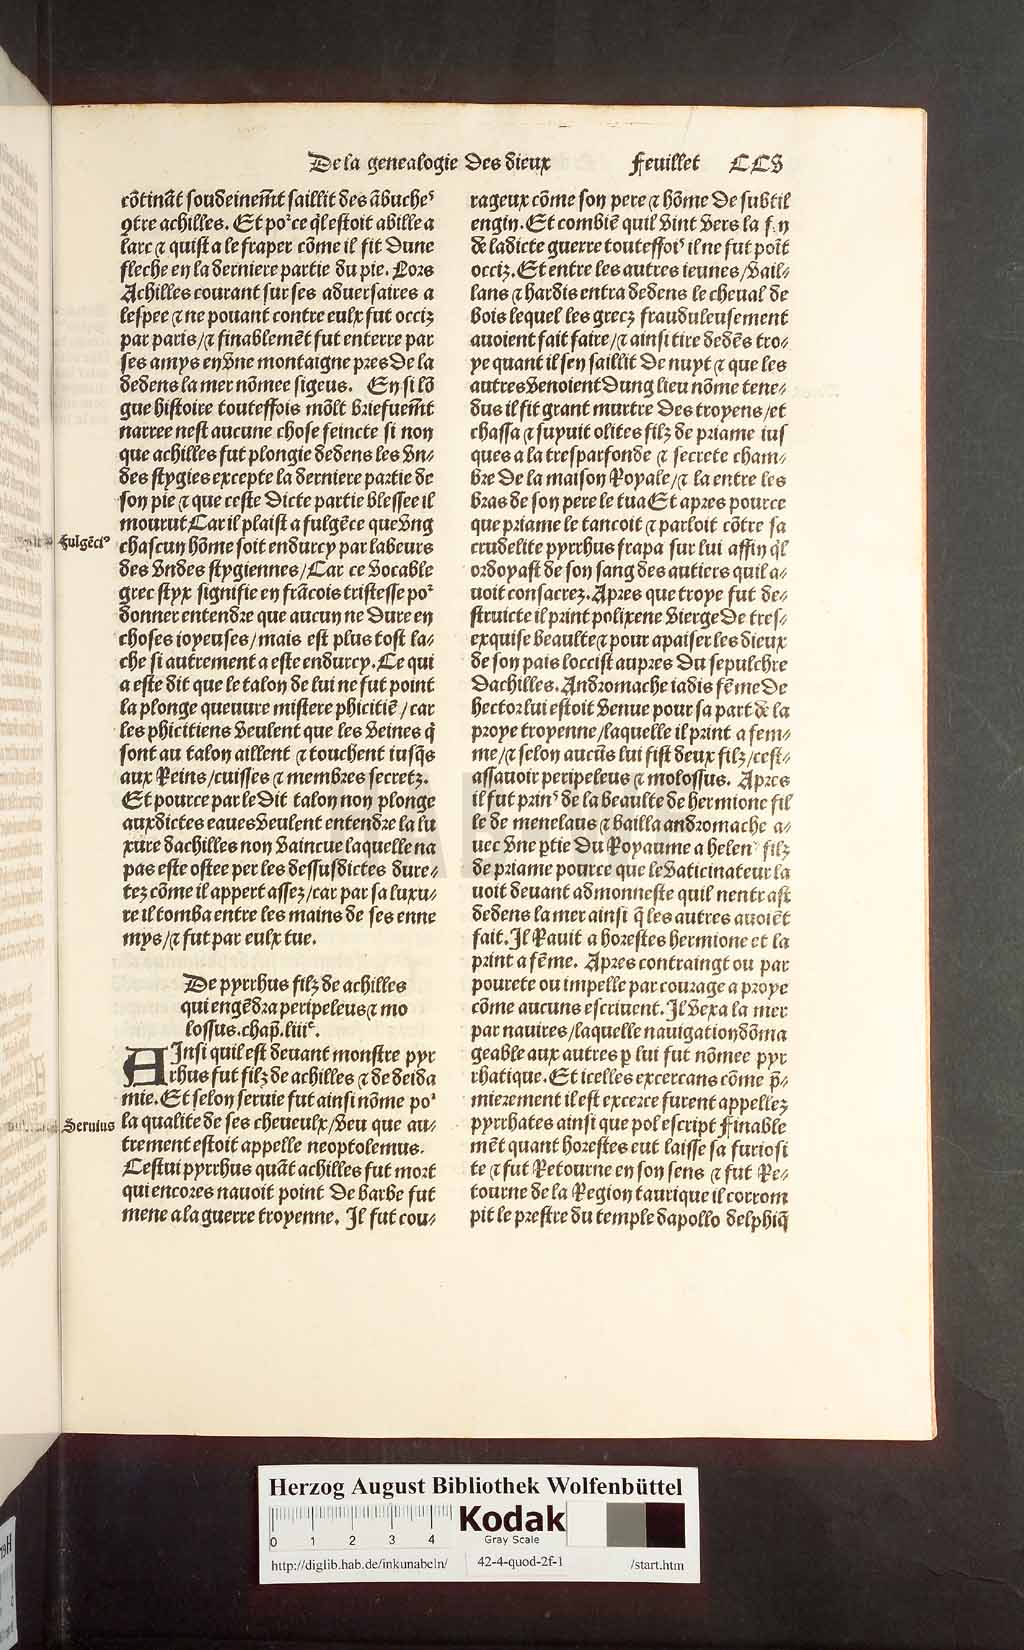 De la genealogie des dieux Feuillet CCV
cõtinãt soudeinemẽt saillit des ãbuche⁹
ꝯtre achilles. Et poᷣce q̃l estoit abille a
larc ⁊ quist a le fraper cõme il fit dune
fleche en la derniere partie du pie. Lors
Achilles courant sur ses aduersaires a
lespee ⁊ ne pouant contre eulx fut occiz
par paris/⁊ finablemẽt fut enterre par
ses amys en vne montaigne pres de la
dedens la mer nõmee sigeus. En si lõ
gue histoire touteffois mõlt briefuemẽt
narree nest aucune chose feincte si non
que achilles fut plongie dedens les vn⸗
des stygies excepte la derniere partie de
son pie ⁊ que ceste dicte partie blessee il
mourut Car il plaist a fulgẽce que vng
Fulgẽci⁹
chascun hõme soit endurcy par labeurs
des vndes stygiennes/Car ce vocable
grec styx signifie en frãcois tristesse poᷣ
donner entendre que aucun ne dure en
choses ioyeuses/mais est plus tost la⸗
che si autrement a este endurcy. Ce qui
a este dit que le talon de lui ne fut point
la plonge queuure mistere phicitiẽ/car
les phicitiens veulent que les veines q̃
sont au talon aillent ⁊ touchent iusq̃s
aux Reins/cuisses ⁊ membres secretz.
Et pource par le dit talon non plonge
auxdictes eaues veulent entendre la lu
xure dachilles non vaincue laquelle na
pas este ostee per les dessusdictes dure⸗
tez cõme il appert assez/car par sa luxu⸗
re il tomba entre les mains de ses enne
mys/⁊ fut par eulx tue.
De pyrrhus filz de achilles
qui engẽdra peripeleus ⁊ mo
lossus. chap̃. liiiᵉ.
AInsi quil est deuant monstre pyr
rhus fut filz de achilles ⁊ de deida
mie. Et selon seruie fut ainsi nõme poᷣ
Seruius
la qualite de ses cheueulx/veu que au⸗
trement estoit appelle neoptolemus.
Cestui pyrrhus quãt achilles fut mort
qui encores nauoit point de barbe fut
mene a la guerre troyenne. Il fut cou⸗
rageux cõme son pere ⁊ hõme de subtil
engin. Et combiẽ quil vint vers la fin
de ladicte guerre touteffoi⁹ il ne fut poĩt
occiz. Et entre les autres ieunes/vail⸗
lans ⁊ hardis entra dedens le cheual de
bois lequel les grecz frauduleusement
auoient fait faire/⁊ ainsi tire dedẽs tro⸗
ye quant il sen saillit de nuyt ⁊ que les
autres venoient dung lieu nõme tene⸗
dus il fit grant murtre des troyens/et
chassa ⁊ suyuit olites filz de priame ius
ques a la tresparfonde ⁊ secrete cham⸗
bre de la maison Royale/⁊ la entre les
bras de son pere le tua Et apres pource
que priame le tancoit ⁊ parloit cõtre sa
crudelite pyrrhus frapa sur lui affin q̃l
ordoyast de son sang des autiers quil a⸗
uoit consacrez. Apres que troye fut de⸗
structe il print polixene vierge de tres⸗
exquise beaulte ⁊ pour apaiser les dieux
de son pais loccist aupres du sepulchre
dachilles. Andromache iadis fẽme de
hector lui estoit venue pour sa part de la
proye troyenne/laquelle il print a fem⸗
me/⁊ selon aucũs lui fist deux filz/cest⸗
assauoir peripeleus ⁊ molossus. Apres
il fut prin⁹ de la beaulte de hermione fil
le de menelaus ⁊ bailla andromache a⸗
uec vne ꝑtie du Royaume a helen⁹ filz
de priame pource que le vaticinateur la
uoit deuant admonneste quil nentrast
dedens la mer ainsi q̃ les autres auoiẽt
fait. Il Rauit a horestes hermione et la
print a fẽme. Apres contraingt ou par
pourete ou impelle par courage a proye
cõme aucuns escriuent. Il vexa la mer
par nauires/laquelle nauigation dõma
geable aux autres ꝑ lui fut nõmee pyr
rhatique. Et icelles excercans cõme p̃⸗
mierement il est excerce furent appellez
pyrrhates ainsi que pol escript Finable
mẽt quant horestes eut laisse sa furiosi
te ⁊ fut Retourne en son sens ⁊ fut Re⸗
tourne de la Region taurique il corrom
pit le prestre du temple dapollo delphiq̃
Herzog August Bibliothek Wolfenbüttel
0 1 2 3 4
Kodak
Gray Scale
http://diglib.hab.de/inkunabeln/ 42-4-quod-2f-1 /start.htm